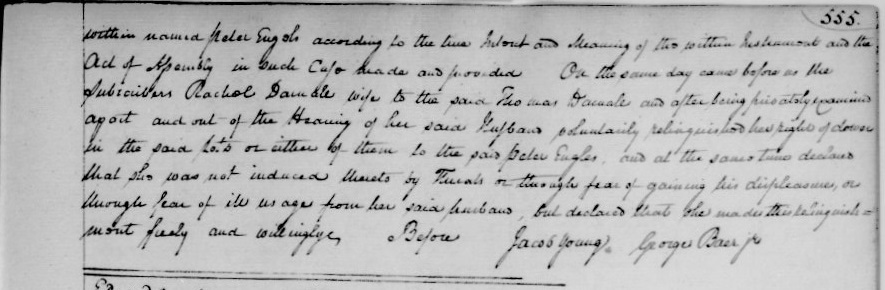 555.
within named Peter Engels according to the true Intent and Meaning of the within Instrument and the
Act of Assembly in such Case made and provided On the same day came before us the
Subscribers Rachel Darnale wife to the said Thomas Darnale and after being privately examined
apart and out of the Hearing of her said Husband voluntarily relinquished her right of dower
in the said Lots or either of them to the said Peter Engles, and at the same time declared
that she was not induced thereto by Threats or through fear of gaining his displeasure, or
through fear of ill usage from her said husband, but declared that she made this relinquish=
ment freely and willingly, Before Jacob Young, George Baer jr